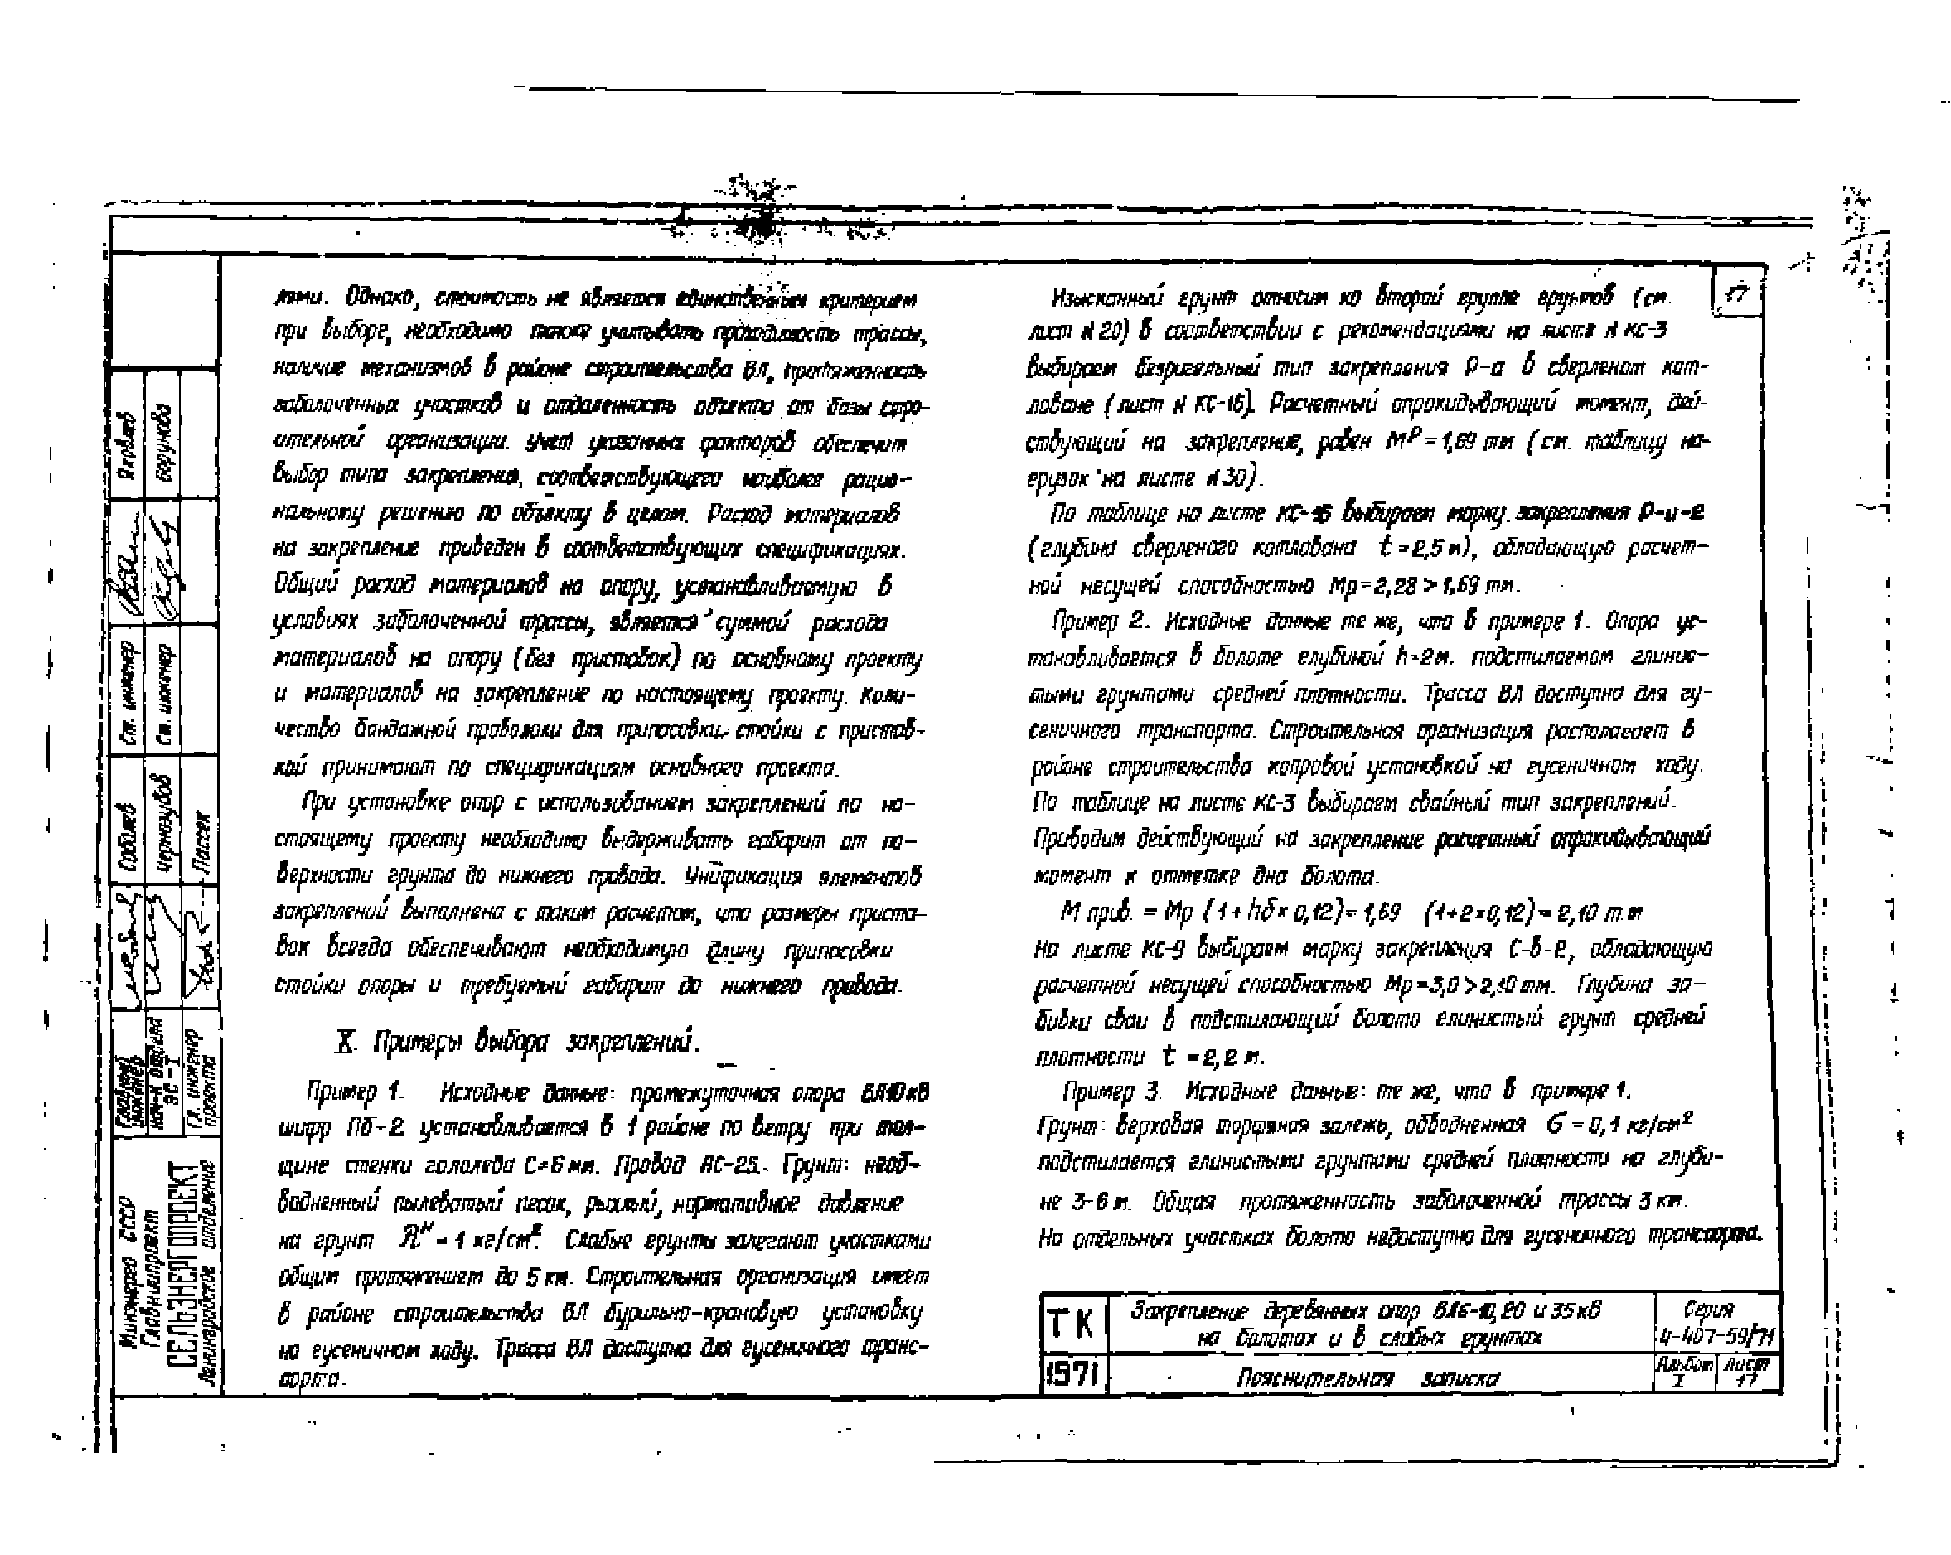 лями. Однако, стоимость не является единственным критерием
при выборе, необходимо также учитывать проходимость трассы,
наличие механизмов в районе строительства ВЛ, протяженность
заболоченных участков и отдаленность объекта от базы стро-
ительной организации. Учет указанных факторов обеспечит
выбор типа закрепления, соответствующего наиболее рацио-
нальному решению по объекту в целом. Расход материалов
на закрепление приведен в соответствующих спецификациях.
Общий расход материалов на опору, устанавливаемую в
условиях заболоченной трассы, является суммой расхода
материалов на опору (без приставок) по основному проекту
и материалов на закрепление по настоящему проекту. Коли-
чество бандажной проволоки для припасовки стойки с пристав-
кой принимают по спецификациям основного проекта.
При установке опор с использованием закреплений по на-
стоящему проекту необходимо выдерживать габарит от по-
верхности грунта до нижнего провода. Унификация элементов
закреплений выполнена с таким расчетом, что размеры приста-
вок всегда обеспечивают необходимую длину припасовки
стойки опоры и требуемый габарит до нижнего провода.
X. Примеры выбора закреплений.
Пример 1. Исходные данные: промежуточная опора ВЛ10кВ
шифр ПБ-2 устанавливается в 1 районе по ветру при тол-
щине стенки гололеда С=6мм. Провод АС-25. Грунт: необ-
водненный пылеватый песок, рыхлый, нормативное давление
на грунт Rᴴ = 1 кг/см². Слабые грунты залегают участками
общим протяжением до 5 км. Строительная организация имеет
в районе строительства ВЛ бурильно-крановую установку
на гусеничном ходу. Трасса ВЛ доступна для гусеничного транс-
порта.
17
Изысканный грунт относим ко второй группе грунтов (см.
лист N 20) в соответствии с рекомендациями на листе N КС-3
выбираем безригельный тип закрепления Р-а в сверленом кот-
ловане (лист N КС-16). Расчетный опрокидывающий момент, дей-
ствующий на закрепление, равен Mᴾ = 1,69 тм (см. таблицу на-
грузок на листе N 30).
По таблице на листе КС-16 выбираем марку закрепления Р-и-2
(глубина сверленого котлована t = 2,5 м), обладающую расчет-
ной несущей способностью Мр = 2,28 > 1,69 тм.
Пример 2. Исходные данные те же, что в примере 1. Опора ус-
танавливается в болоте глубиной h=2м. подстилаемом глинис-
тыми грунтами средней плотности. Трасса ВЛ доступна для гу-
сеничного транспорта. Строительная организация располагает в
районе строительства копровой установкой на гусеничном ходу.
По таблице на листе КС-3 выбираем свайный тип закреплений.
Приводим действующий на закрепление расчетный опрокидывающий
момент к отметке дна болота.
М прив. = Мр (1 + hб × 0,12) = 1,69 (1+2×0,12) = 2,10 т.м
На листе КС-9 выбираем марку закрепления С-в-2, обладающую
расчетной несущей способностью Мр = 3,0 > 2,10 тм. Глубина за-
бивки сваи в подстилающий болото глинистый грунт средней
плотности t = 2,2 м.
Пример 3. Исходные данные: те же, что в примере 1.
Грунт: верховая торфяная залежь, обводненная G = 0,1 кг/см²
подстилается глинистыми грунтами средней плотности на глуби-
не 3-6 м. Общая протяженность заболоченной трассы 3 км.
На отдельных участках болото недоступно для гусеничного транспорта.
ТК
1971
Закрепление деревянных опор ВЛ6-10, 20 и 35 кВ
на болотах и в слабых грунтах
Пояснительная записка
Серия
4-407-59/71
Альбом I
лист 17
Минэнерго СССР
Главниипроект
СЕЛЬЭНЕРГОПРОЕКТ
Ленинградское отделение
Главный инженер
Нач-к отдела ЭС-1
Гл. инженер проекта
Соболев
Чернозубов
Пассек
Ст. инженер
Ст. инженер
Яковлев